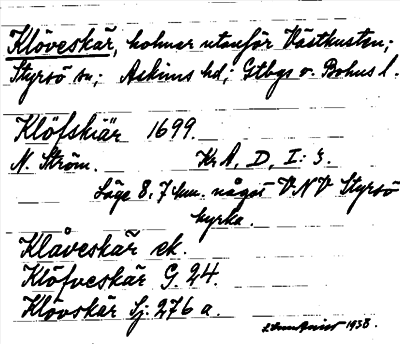 Klöveskär, holmar utanför Västkusten;
Styrsö sn; Askims hd; Gtbgs o. Bohus l.
Klöfskiär 1699.
N. Ström. Kr A, D, I: 3.
Läge 8,7 km. något V.N.V Styrsö
kyrka.
Klåveskär ek.
Klöfveskär G. 24.
Klovskär Sj. 276 a.
1938.